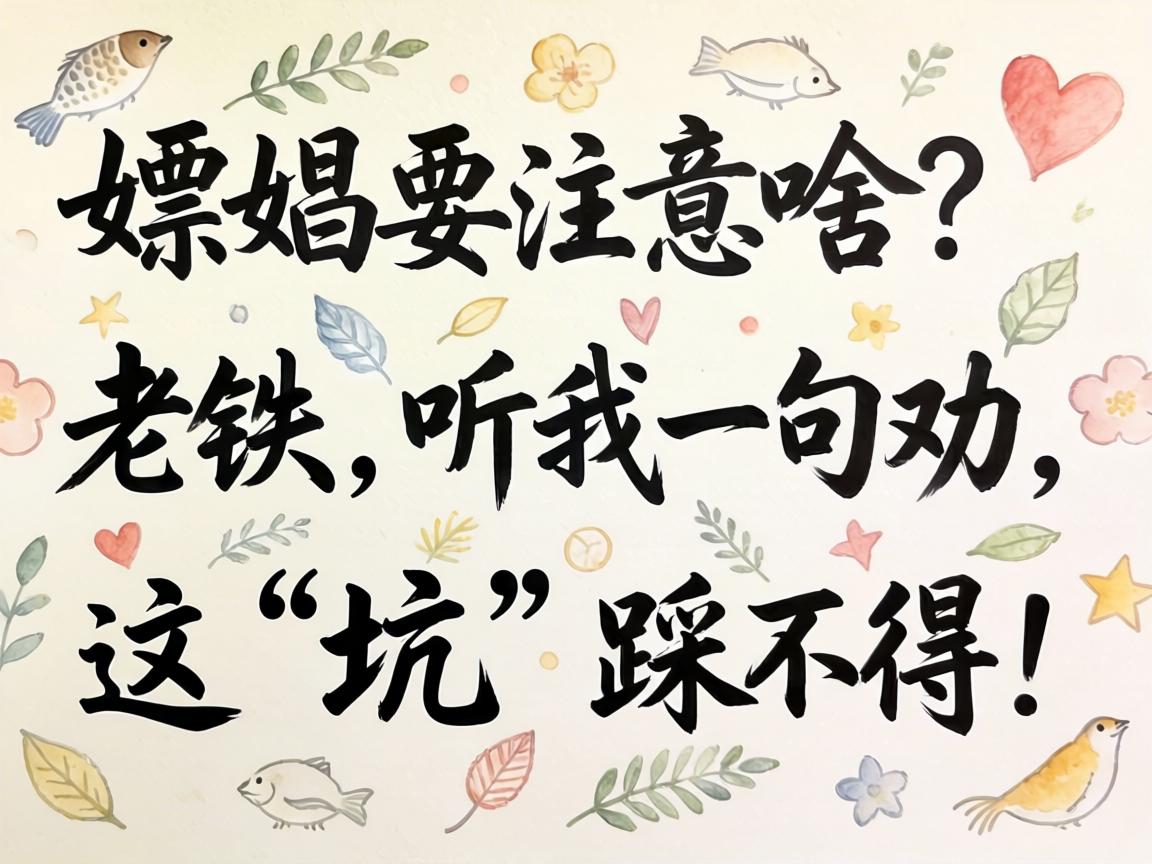 嫖娼要注意啥?
老铁,听我一句劝,
这“坑”踩不得!